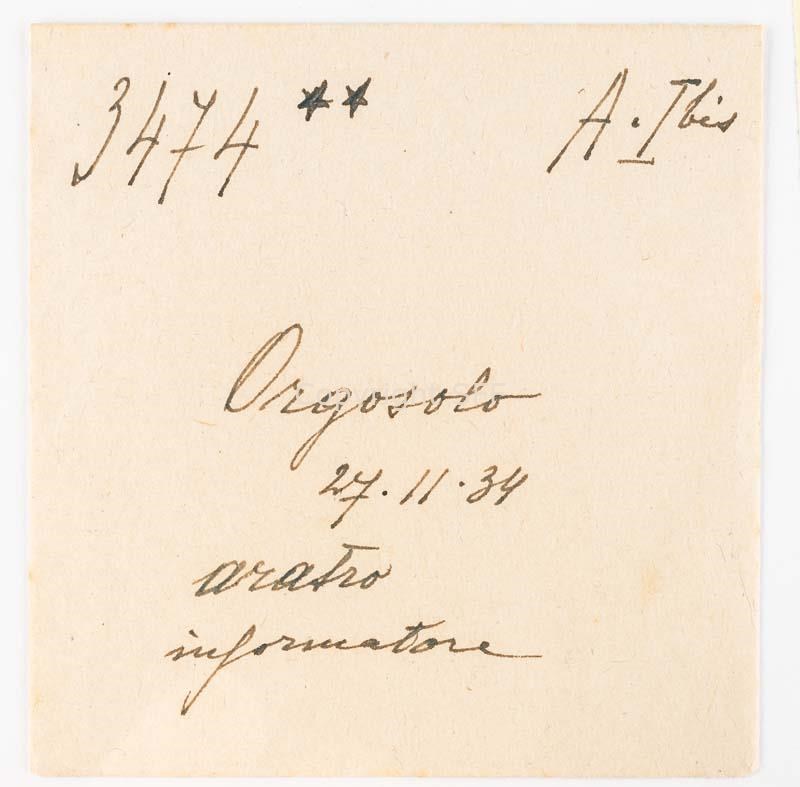 3474 ** A. I bis
Orgosolo
27.11.34
aratro
informatore